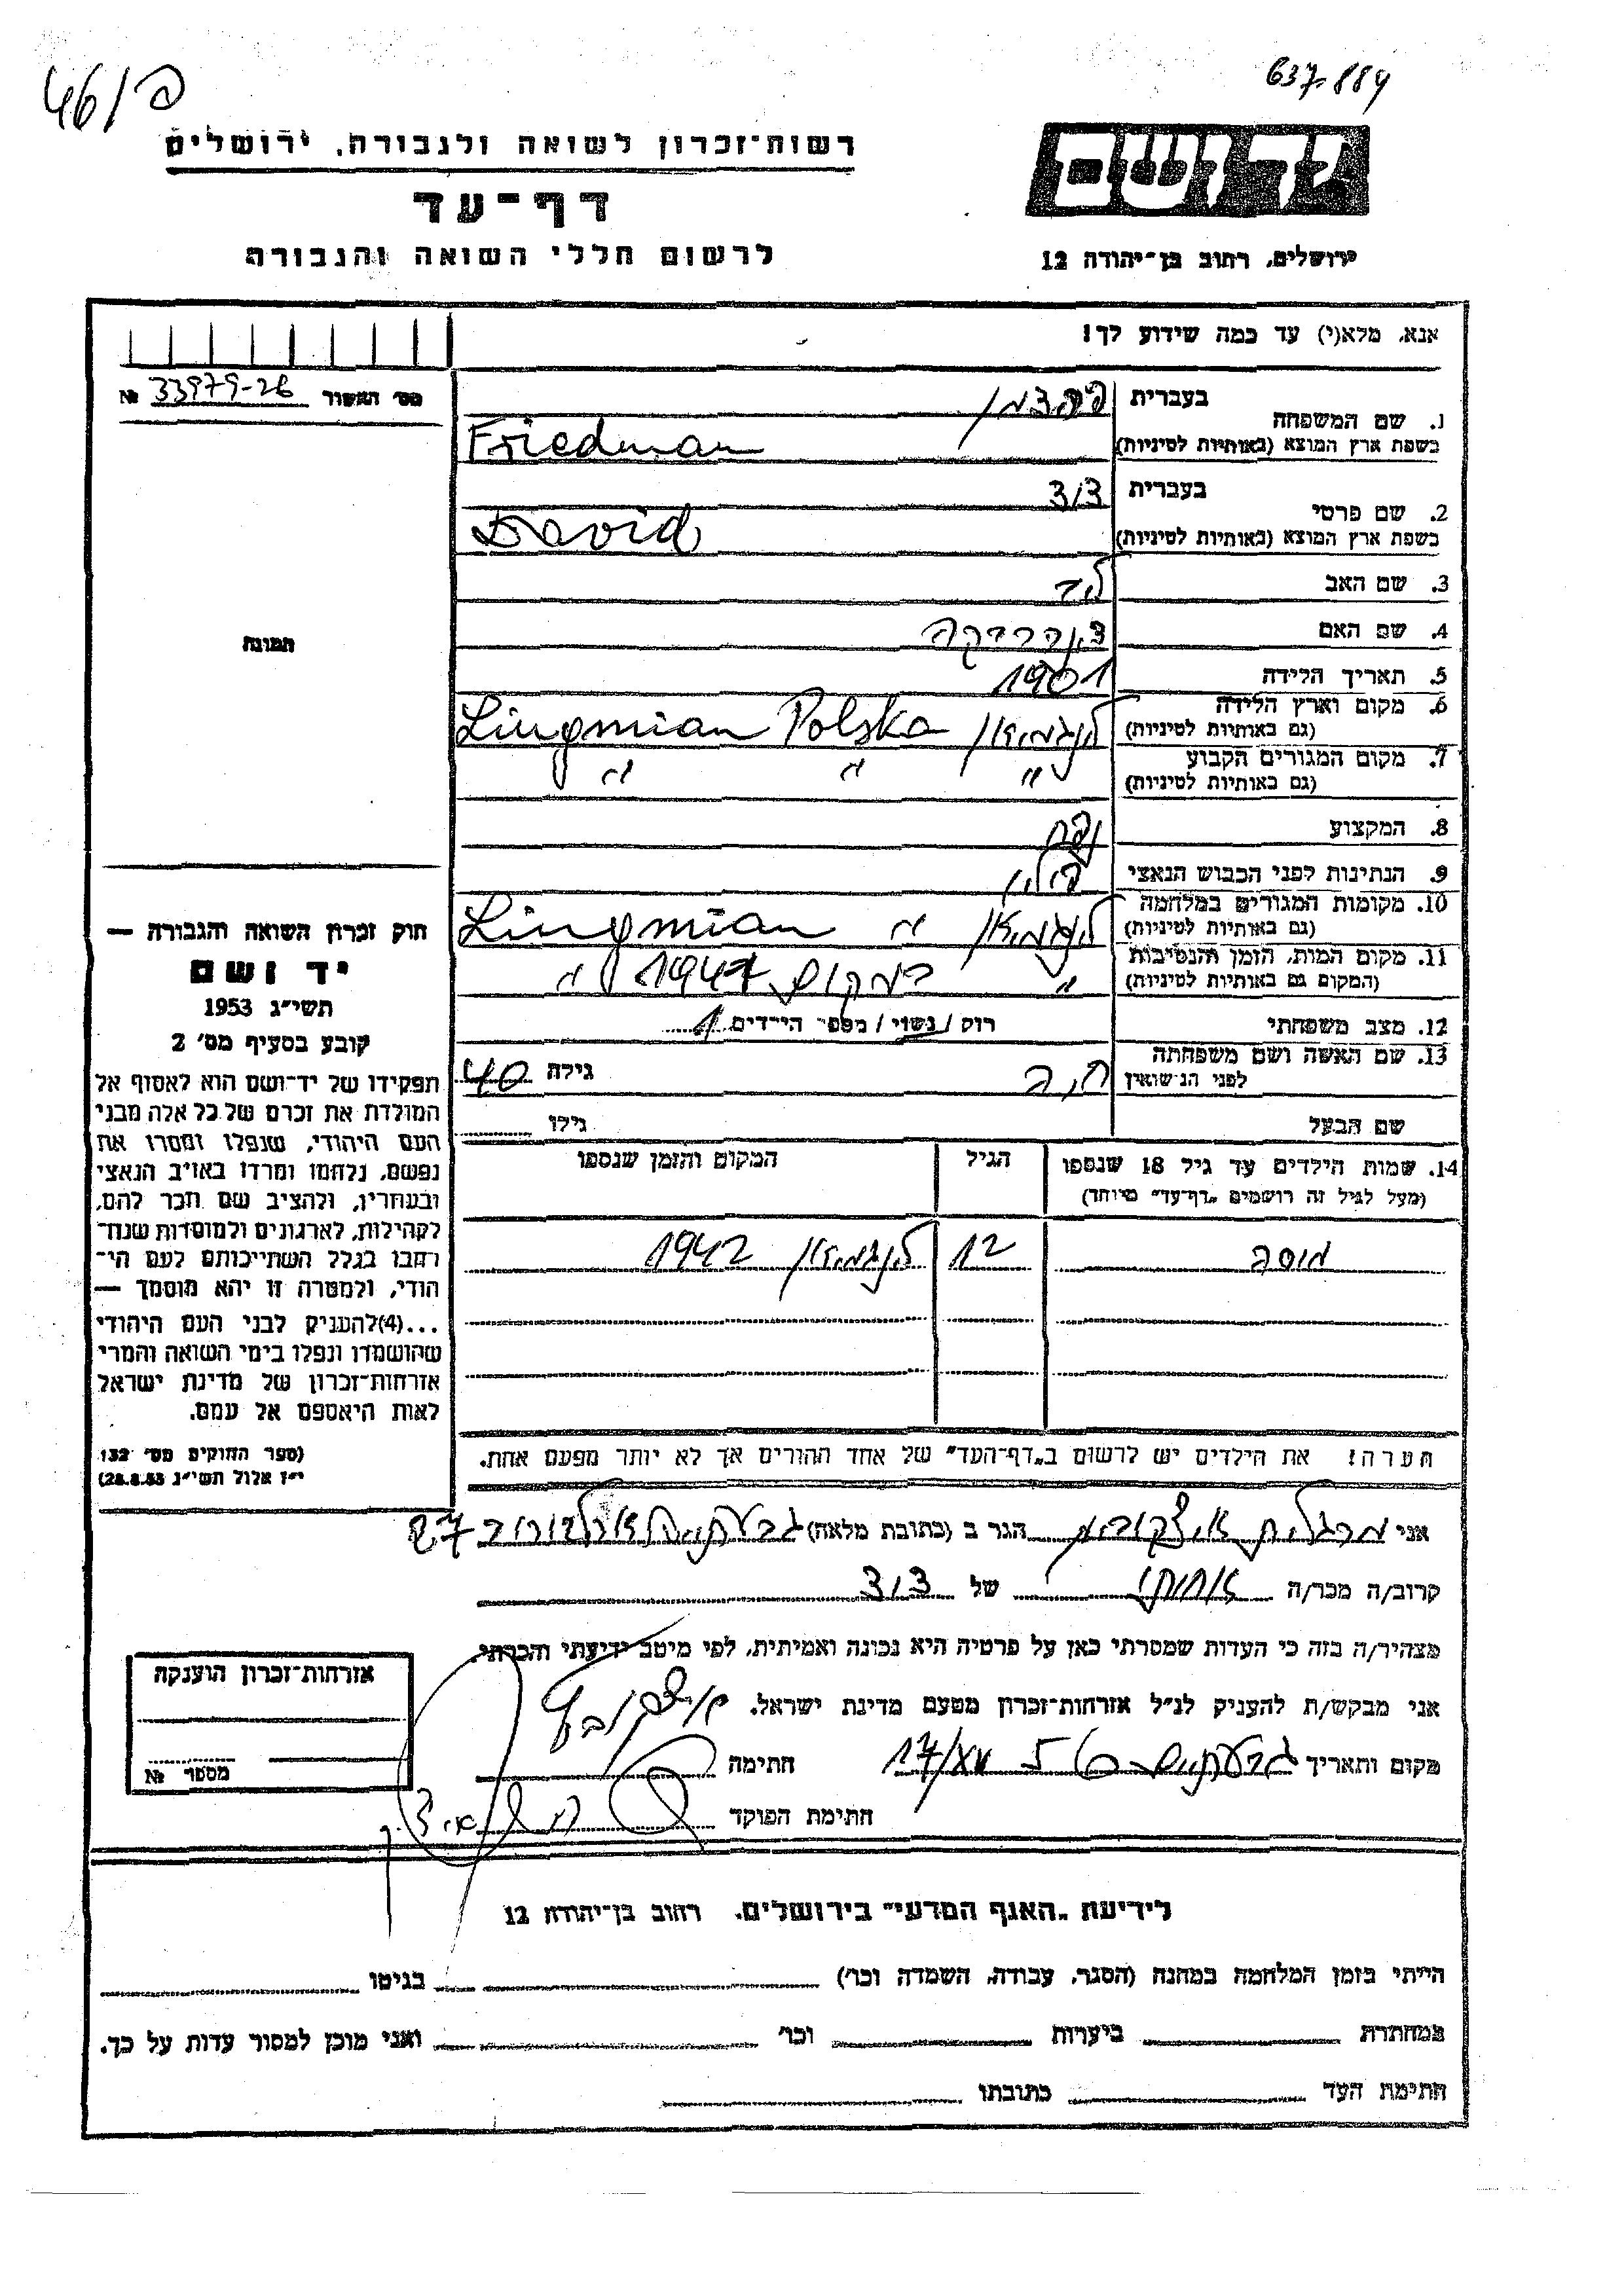 46/פ
637.884
רשות־זכרון לשואה ולגבורה, ירושלים
דף־עד
לרשום חללי השואה והגבורה
יד ושם
ירושלים, רחוב בן־יהודה 12
אנא, מלא(י) עד כמה שידוע לך!
מס׳ האשור 33979-26 №
תמונה
1. שם המשפחה
בעברית פרידמן
בשפת ארץ המוצא (באותיות לטיניות) Friedman
2. שם פרטי
בעברית דוד
בשפת ארץ המוצא (באותיות לטיניות) David
3. שם האב
4. שם האם
5. תאריך הלידה 1901
6. מקום וארץ הלידה
(גם באותיות לטיניות) לינגמיאן Lingmian Polska
7. מקום המגורים הקבוע
(גם באותיות לטיניות) " " "
8. המקצוע נפח
9. הנתינות לפני הכבוש הנאצי פולין
10. מקומות המגורים במלחמה
(גם באותיות לטיניות) לינגמיאן " Lingmian
11. מקום המות, הזמן והנסיבות
(המקום גם באותיות לטיניות) " במקום 1942 "
12. מצב משפחתי רווק / נשוי / מספר הילדים 1
13. שם האשה ושם משפחתה
לפני הנישואין חוה גילה 40
שם הבעל גילו
14. שמות הילדים עד גיל 18 שנספו
(מעל לגיל זה רושמים „דף־עד" מיוחד)
הגיל
המקום והזמן שנספו
מוסה 12 לינגמיאן 1942
הערה! את הילדים יש לרשום ב„דף־העד" של אחד ההורים אך לא יותר מפעם אחת.
חוק זכרון השואה והגבורה —
יד ושם
תשי״ג 1953
קובע בסעיף מס׳ 2
תפקידו של יד־ושם הוא לאסוף אל
המולדת את זכרם של כל אלה מבני
העם היהודי, שנפלו ומסרו את
נפשם, נלחמו ומרדו באויב הנאצי
ובעוזריו, ולהציב שם וזכר להם,
לקהילות, לארגונים ולמוסדות שנח־
רבו בגלל השתייכותם לעם הי־
הודי, ולמטרה זו יהא מוסמך —
...(4)להעניק לבני העם היהודי
שהושמדו ונפלו בימי השואה והמרי
אזרחות־זכרון של מדינת ישראל
לאות היאספם אל עמם.
(ספר החוקים מס׳ 132
י״ז אלול תשי״ג 28.8.53)
אני מרגלית איצקוביץ הגר ב (כתובת מלאה) גבעתיים 27
קרוב/ה מכר/ה אחותו של דוד
מצהיר/ה בזה כי העדות שמסרתי כאן על פרטיה היא נכונה ואמיתית, לפי מיטב ידיעתי והכרתי.
אני מבקש/ת להעניק לנ״ל אזרחות־זכרון מטעם מדינת ישראל.
מקום ותאריך גבעתיים חתימה איצקוביץ
חתימת הפוקד
אזרחות־זכרון הוענקה
מספר №
לידיעת „האגף המדעי" בירושלים, רחוב בן־יהודה 12
הייתי בזמן המלחמה במחנה (הסגר, עבודה, השמדה וכו׳) בגיטו
במחתרת ביערות וכו׳ ואני מוכן למסור עדות על כך.
חתימת העד כתובתו